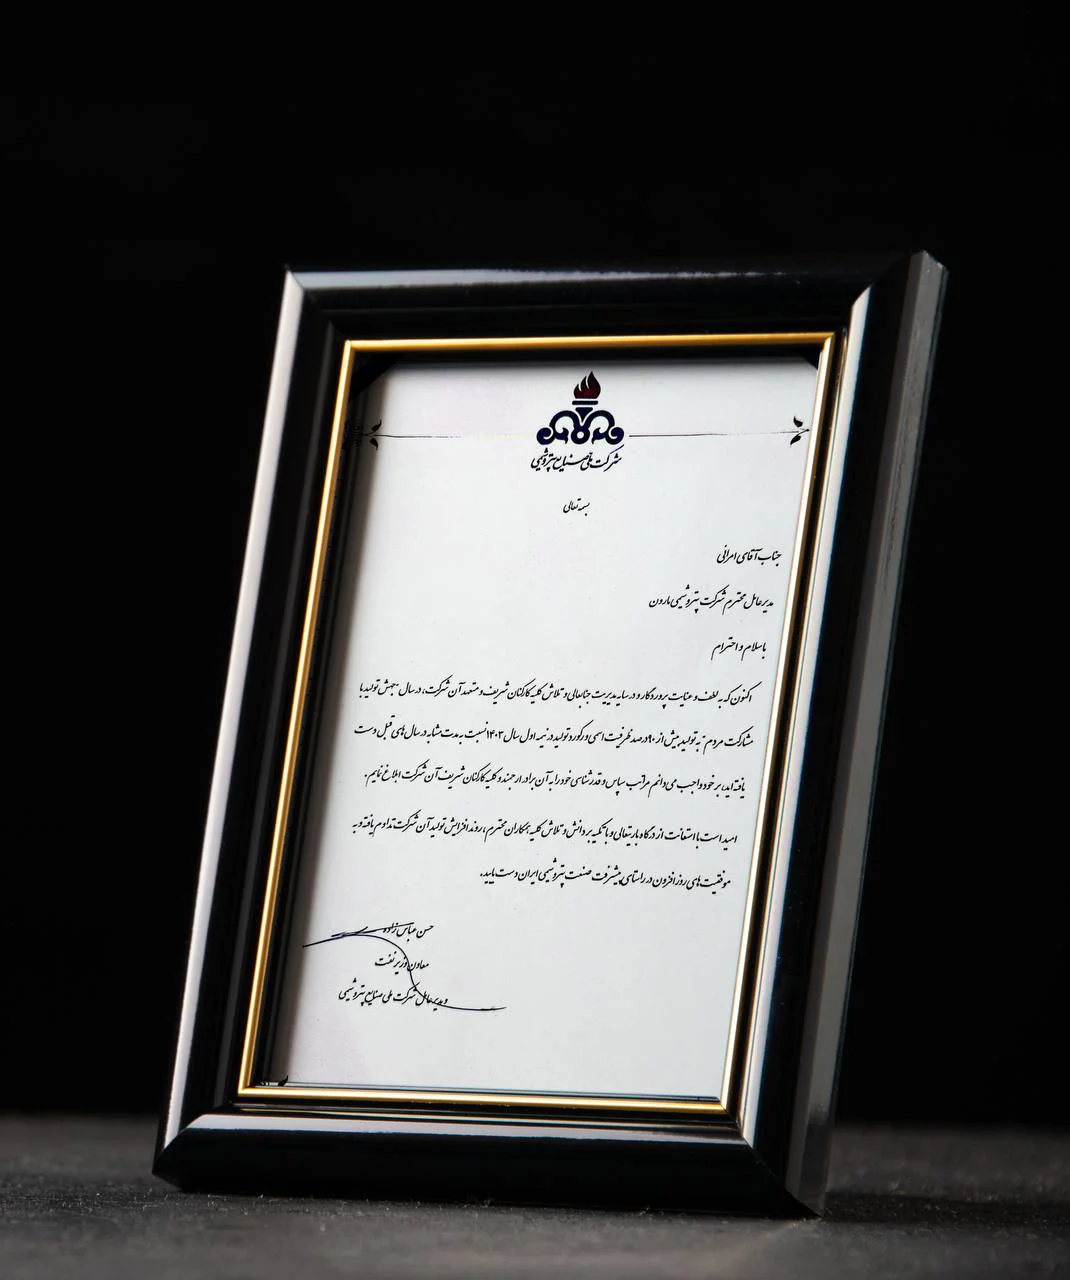 شرکت ملی صنایع پتروشیمی
بسمه تعالی
جناب آقای امرانی
مدیرعامل محترم شرکت پتروشیمی مارون
با سلام و احترام
اکنون که به لطف و عنایت پروردگار و در سایه مدیریت جنابعالی و تلاش کلیه کارکنان شریف و متعهد آن شرکت، در سال "جهش تولید با
مشارکت مردم" به تولید بیش از ۹۰ درصد ظرفیت اسمی و رکورد تولید در نیمه اول سال ۱۴۰۳ نسبت به مدت مشابه در سال های قبل دست
یافته اید، بر خود واجب می دانم مراتب سپاس و قدرشناسی خود را به آن برادر ارجمند و کلیه کارکنان شریف آن شرکت ابلاغ نمایم.
امید است با استعانت از درگاه باریتعالی و با تکیه بر دانش و تلاش کلیه همکاران محترم، روند افزایش تولید آن شرکت تداوم یافته و به
موفقیت های روز افزون در راستای پیشرفت صنعت پتروشیمی ایران دست یابید.
حسن عباس زاده
معاون وزیر نفت
و مدیرعامل شرکت ملی صنایع پتروشیمی